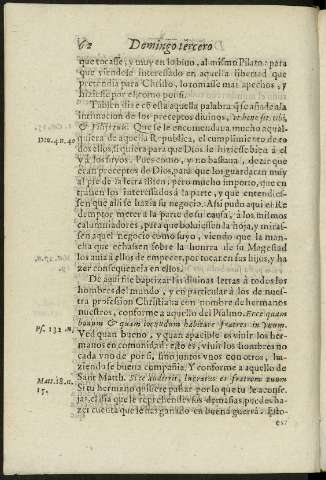 62 Domingo tercero
que tocasse, y muy en lo biuo, al mismo Pilato: para
que viendose interessado en aquella libertad que
pretendia para Christo, lo tomasse mas a pechos, y
hiziesse por el como por si.
Tãbien dize cõ esta aquella palabra q̃ se añade a la
intimacion de los preceptos diuinos, Vt bene sit tibi,
Deu. 4. n. 40 & filijs tuis. Que se le encomendaua mucho a qual-
quiera de aquella Republica, el cumplimiento de to
dos ellos, siquiera para que Dios le hiziesse bien a el
y a los suyos. Pues como, y no bastaua, dezir que
eran preceptos de Dios, para que los guardaran muy
al pie de la letra? si bien; pero mucho importò, que en
trassen los interessados a la parte, y que entendies-
sen que alli se hazia su negocio. Assi pudo aqui el Re
demptor meter a la parte de su causa, a los mismos
calumniadores, para que boluiessen la hoja, y miras-
sen aquel negocio como suyo, viendo que la man-
cha que echassen sobre la honrra de su Magestad
los auia a ellos de empecer, por tocar en sus hijos, y ha
zer consequencia en ellos.
De aqui fue baptizar las diuinas letras a todos los
hombres del mundo, y en particular à los de nues-
tra profession Christiana con nombre de hermanos
nuestros, conforme a aquello del Psalmo. Ecce quam
Ps. 132. n. bonum & quam iocundum habitare fratres in vnum.
Ved quan bueno, y quan apacible es viuir los her-
manos en comunidad: esto es, viuir los hombres no
cada vno de por si, sino juntos vnos con otros, ha-
ziendose buena compañia. Y conforme a aquello de
Matt. 18. n. Sant Matth. Si te audierit, lucratus es fratrem tuum
15. Si tu hermano quisiere passar por lo que tu le aconse-
jas, el dia que le reprehendes sus demasias, puedes ha-
zer cuenta que le has ganado en buena guerra. Esto-
es?